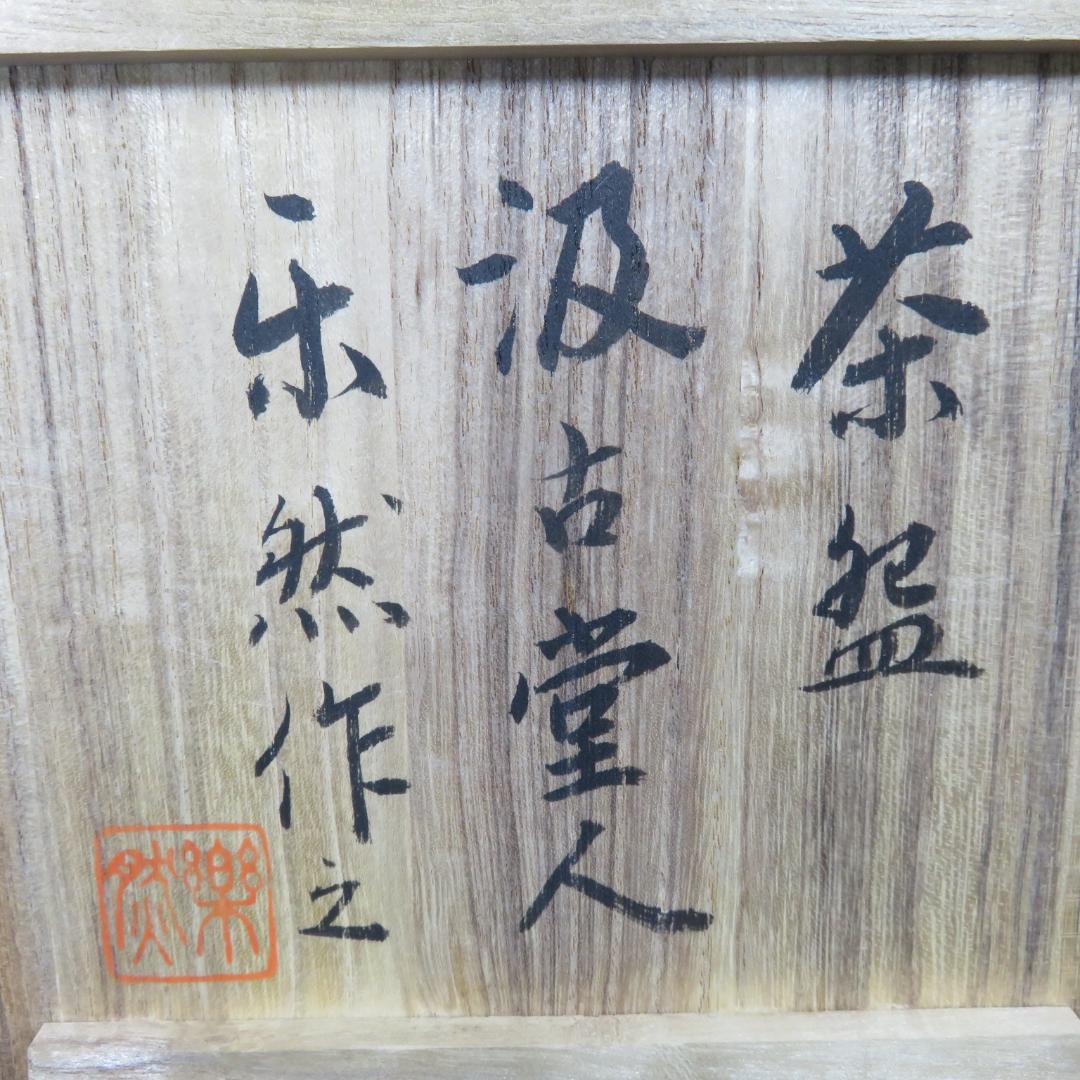 茶盌
汲古堂人
乐然作之
樂然